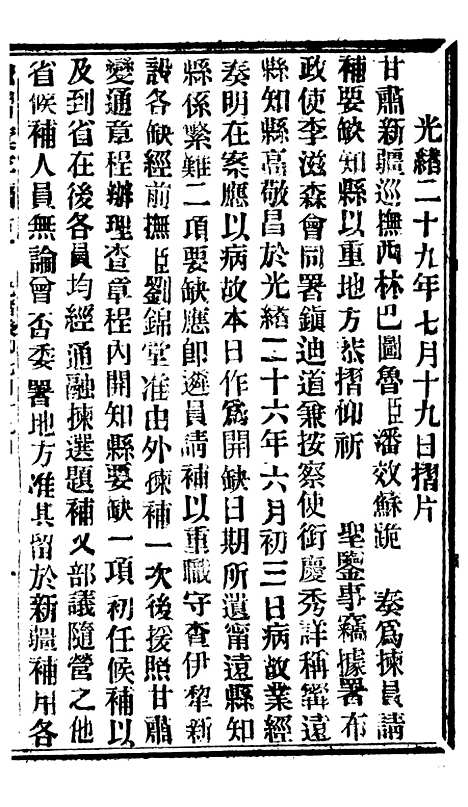 光緒二十九年七月十九日摺片
甘肅新疆巡撫西林巴圖魯臣潘效蘇跪 奏爲揀員請
補要缺知縣以重地方恭摺仰祈 聖鑒事竊據署布
政使李滋森會同署鎮迪道兼按察使銜慶秀詳稱甯遠
縣知縣高敬昌於光緒二十六年六月初三日病故業經
奏明在案應以病故本日作爲開缺日期所遺甯遠縣知
縣係繁難二項要缺應卽遴員請補以重職守查伊犂新
設各缺經前撫臣劉錦堂准由外揀補一次後援照甘肅
變通章程辦理查章程內開知縣要缺一項初任候補以
及到省在後各員均經通融揀選題補又部議隨營之他
省候補人員無論曾否委署地方准其留於新疆補用各